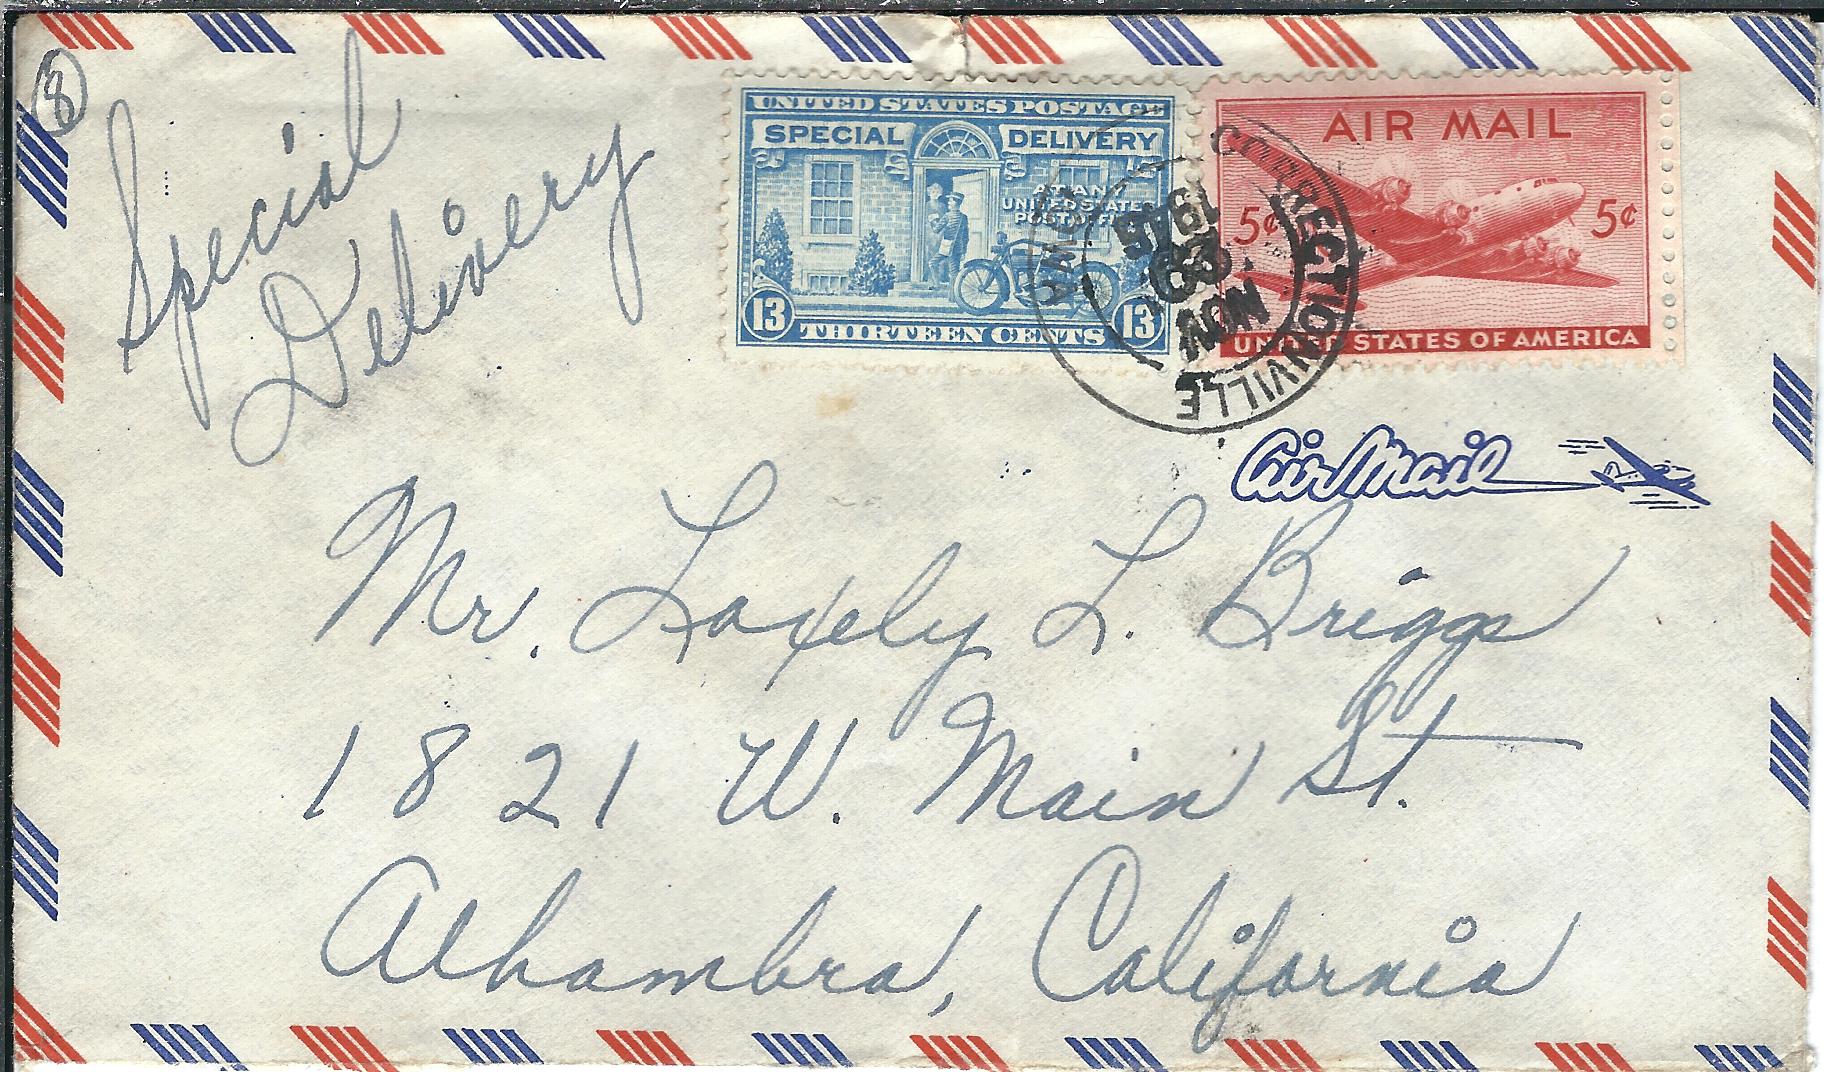 8
Special
Delivery
UNITED STATES POSTAGE
SPECIAL DELIVERY
AT ANY
UNITED STATES
POST OFFICE
13 THIRTEEN CENTS 13
AIR MAIL
5¢ 5¢
UNITED STATES OF AMERICA
CORRECTIONVILLE
IOWA
NOV
23
Air Mail
Mr. Loxely L. Briggs
1821 W. Main St.
Alhambra, California